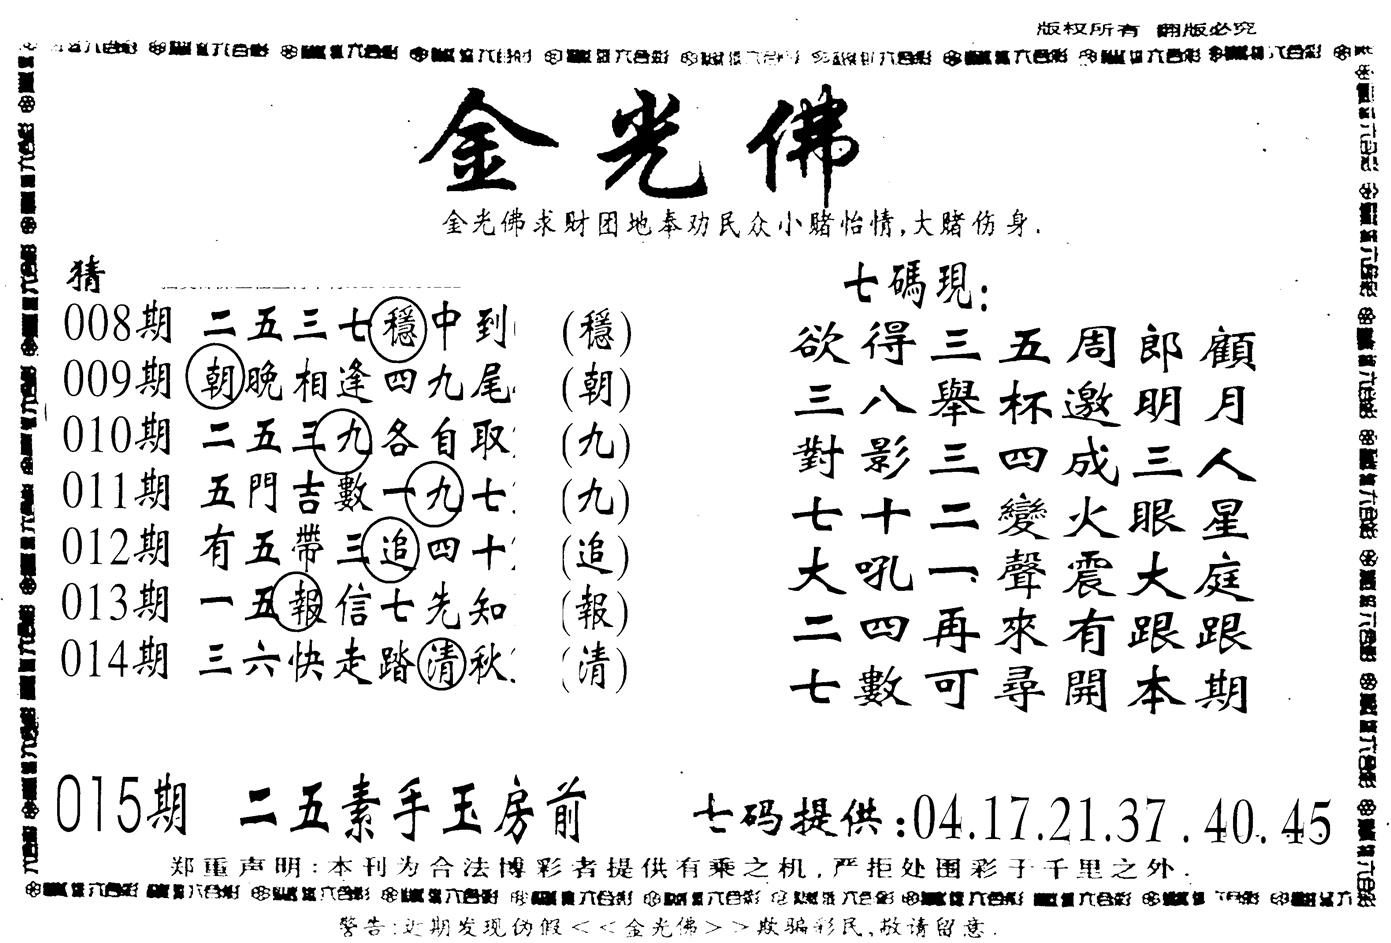 版权所有 翻版必究
金光佛
金光佛求财团地奉劝民众小赌怡情,大赌伤身.
猜
008期 二五三七穩中到 (穩)
009期 朝晚相逢四九尾 (朝)
010期 二五三九各自取 (九)
011期 五門吉數一九七 (九)
012期 有五帶三追四十 (追)
013期 一五報信七先知 (報)
014期 三六快走踏清秋 (清)
七碼現:
欲得三五周郎顧
三八舉杯邀明月
對影三四成三人
七十二變火眼星
大吼一聲震大庭
二四再來有跟跟
七數可尋開本期
015期 二五素手玉房前
七码提供:04.17.21.37.40.45
郑重声明:本刊为合法博彩者提供有乘之机,严拒处围彩于千里之外.
警告:近期发现伪假<<金光佛>>欺骗彩民,敬请留意.